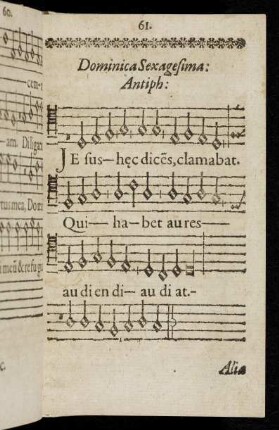 60.
61.
Dominica Sexagesima:
Antiph:
cem-
JE sus—hęc dicẽs, clamabat.
am. Diligam
Qui— ha— bet au res—
tus mea, Dom
au di en di— au di at.-
i meũ & refug
Alia
c.